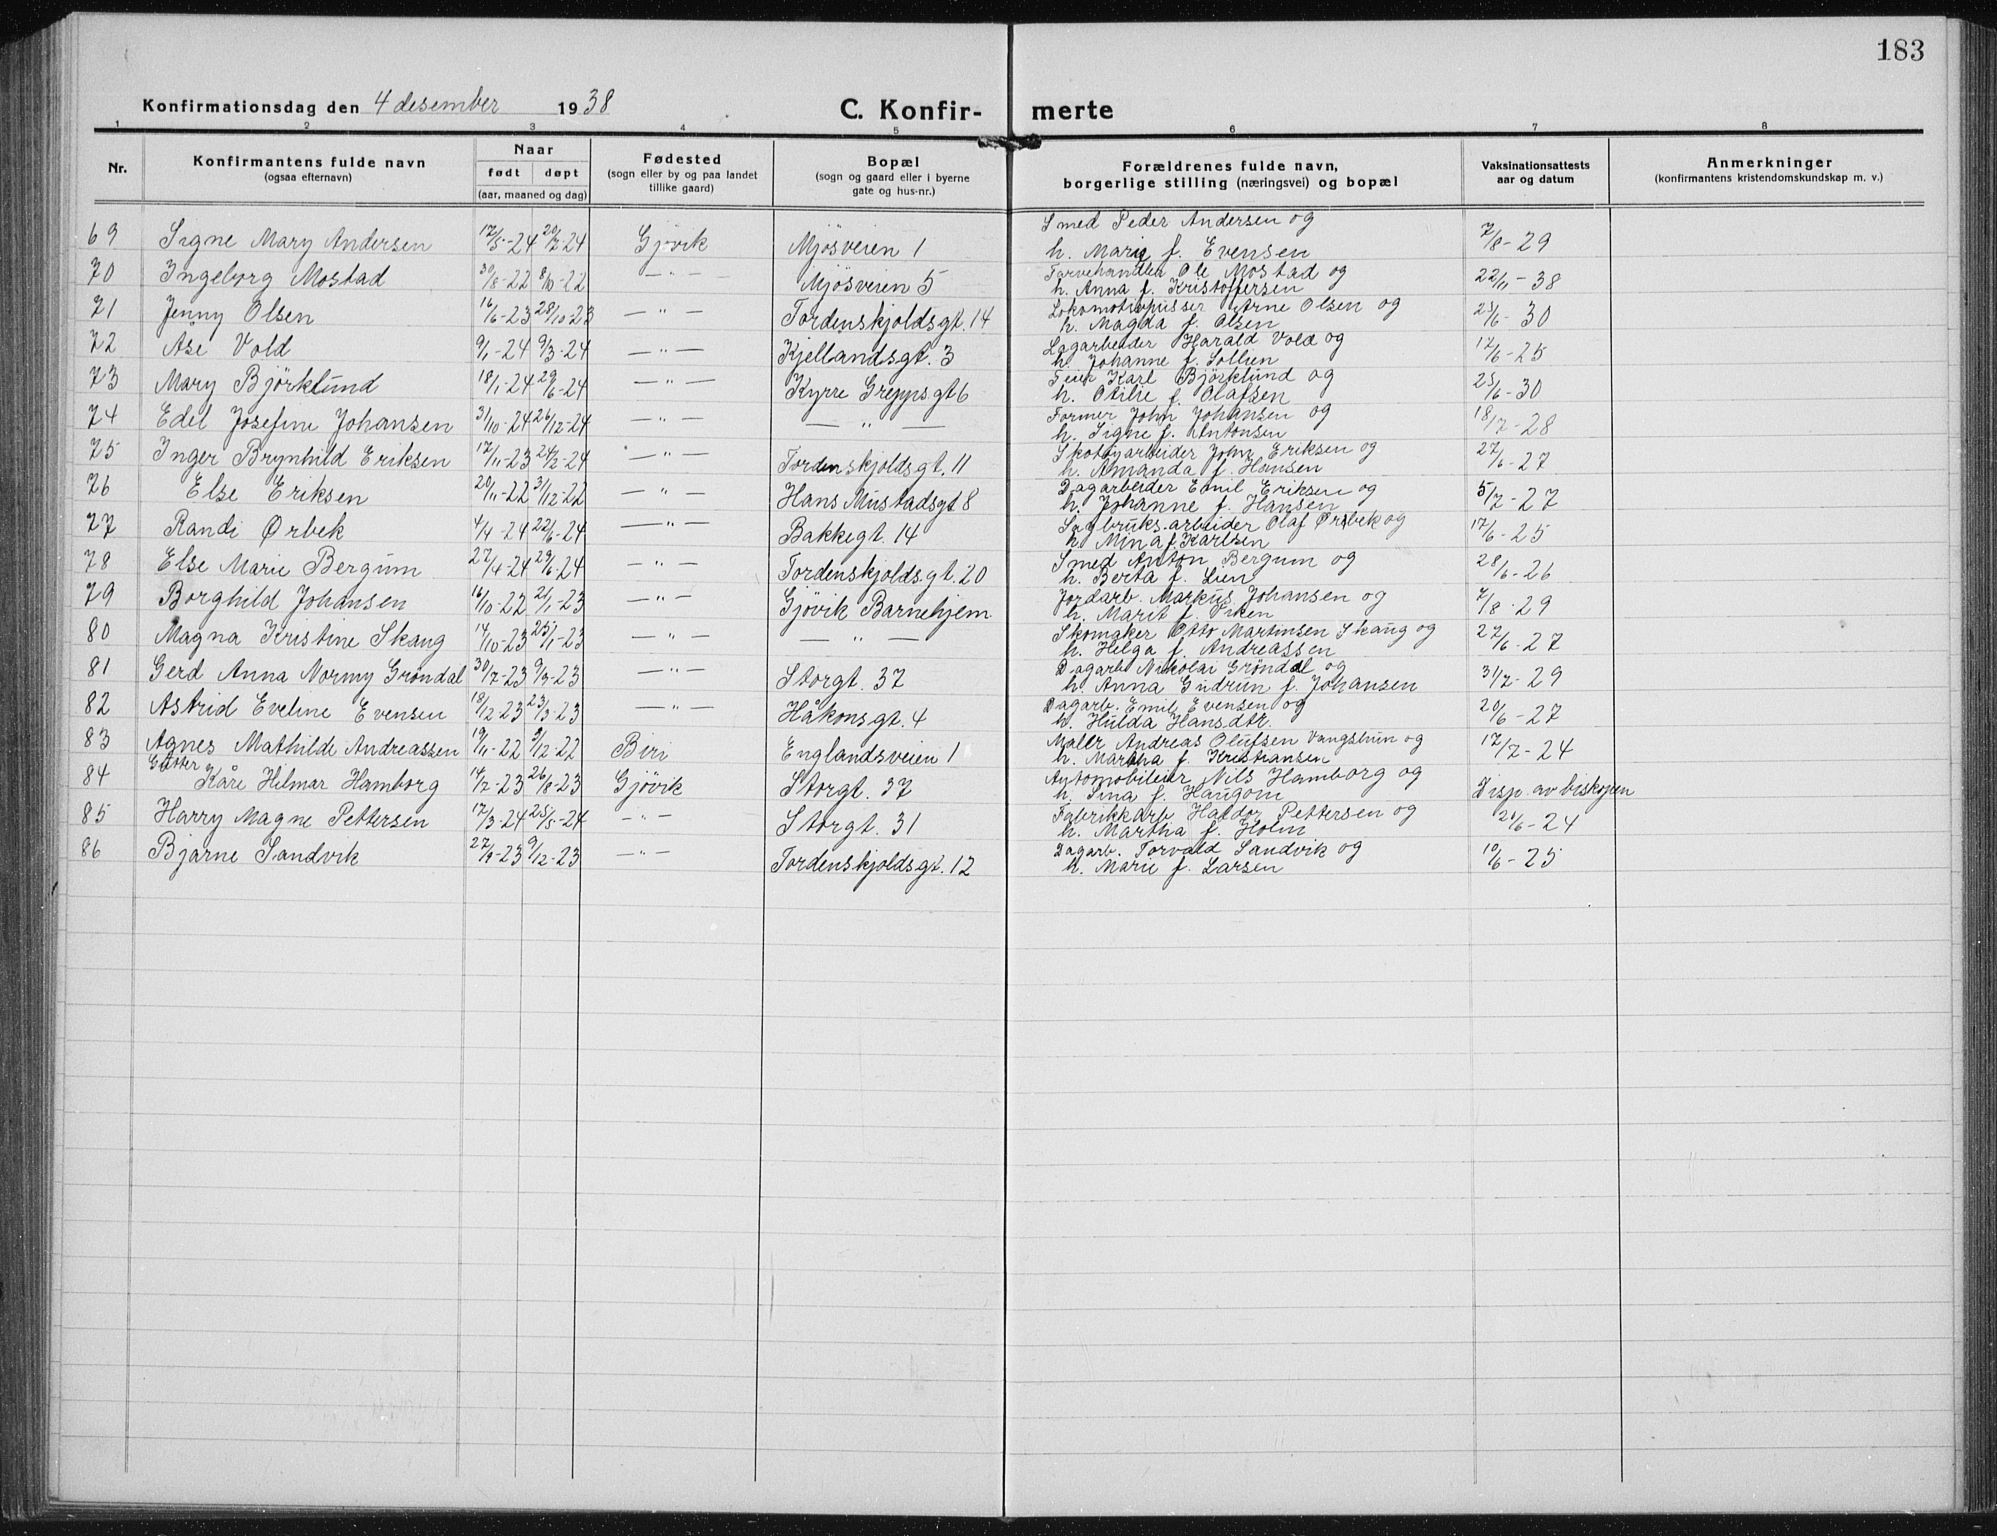 183
Konfirmationsdag den 4 desember 1938 C. Konfir- merte
1 2 3 4 5 6 7 8
Nr. Konfirmantens fulde navn (ogsaa efternavn) Naar født døpt (aar, maaned og dag) Fødested (sogn eller by og paa landet tillike gaard) Bopæl (sogn og gaard eller i byerne gate og hus-nr.) Forældrenes fulde navn, borgerlige stilling (næringsvei) og bopæl Vaksinationsattests aar og datum Anmerkninger (konfirmantens kristendomskundskap m. v.)
69 Signe Mary Andersen 17/5-24 20/7-24 Gjøvik Mjøsveien 1 Smed Peder Andersen og h. Marie f. Evensen 7/8-29
70 Ingeborg Mostad 30/8-22 8/10-22 —"— Mjøsveien 5 Farvehandler Ole Mostad og h. Anna f. Kristoffersen 22/11-38
71 Jenny Olsen 16/6-23 28/10-23 —"— Tordenskjoldsgt. 14 Lokomotivpusser Arne Olsen og h. Magda f. Olsen 25/6-30
72 Åse Vold 9/1-24 9/3-24 —"— Kjellandsgt. 3 Lagarbeider Harald Vold og h. Johanne f. Sollien 17/6-25
73 Mary Björklund 18/1-24 29/6-24 —"— Kyrre Greppsgt 6 Karl Björklund og h. Otilie f. Olafsen 25/6-30
74 Edel Josefine Johansen 31/10-24 26/12-24 —"— —"— Former John Johansen og h. Signe f. Antonsen 18/7-28
75 Inger Brynhild Eriksen 17/11-23 24/2-24 —"— Tordenskjoldsgt. 11 Skotøyarbeider John Eriksen og h. Amanda f. Hansen 27/6-27
76 Else Eriksen 20/11-22 31/12-22 —"— Hans Mustadsgt 8 Dagarbeider Emil Eriksen og h. Johanne f. Hansen 5/7-27
77 Randi Ørbek 4/4-24 22/6-24 —"— Bakkegt. 14 Sagbruks.arbeider Olaf Ørbek og h. Mina f. Karlsen 17/6-25
78 Else Marie Bergum 27/4-24 29/6-24 —"— Tordenskjoldsgt. 20 Smed Anton Bergum og h. Berta f. Lien 28/6-26
79 Borghild Johansen 16/10-22 21/1-23 —"— Gjövik Barnehjem Jordarb. Markus Johansen og h. Marit f. 7/8-29
80 Magna Kristine Skaug 14/10-23 25/1-23 —"— —"— Skomaker Otto Martinsen Skaug og h. Helga f. Andreassen 27/6-27
81 Gerd Anna Normy Gröndal 30/7-23 9/9-23 —"— Storgt. 37 Dagarb Nikolai Gröndal og h. Anna Gudrun f. Johansen 31/7-29
82 Astrid Eveline Evensen 18/12-23 23/3-23 —"— Håkonsgt. 4 Dagarb. Emil Evensen og h. Hulda Hansdtr. 20/6-27
83 Agnes Mathilde Andreassen 19/11-22 3/12-22 Biri Englandsveien 1 Maler Andreas Olufsen Vangstuin og h. Martha f. Kristiansen 17/7-24
Gutter
84 Kåre Hilmar Hamborg 14/7-23 26/8-23 Gjøvik Storgt. 37 Automobileier Nils Hamborg og h. Sina f. Haugom Disp. av biskopen
85 Harry Magne Pettersen 17/3-24 25/5-24 —"— Storgt. 31 Fabrikkarb Haldor Pettersen og h. Martha f. Holm 21/6-24
86 Bjarne Sandvik 27/9-23 9/12-23 —"— Tordenskjoldsgt. 12 Dagarb. Torvald Sandvik og h. Marie f. Larsen 10/6-25